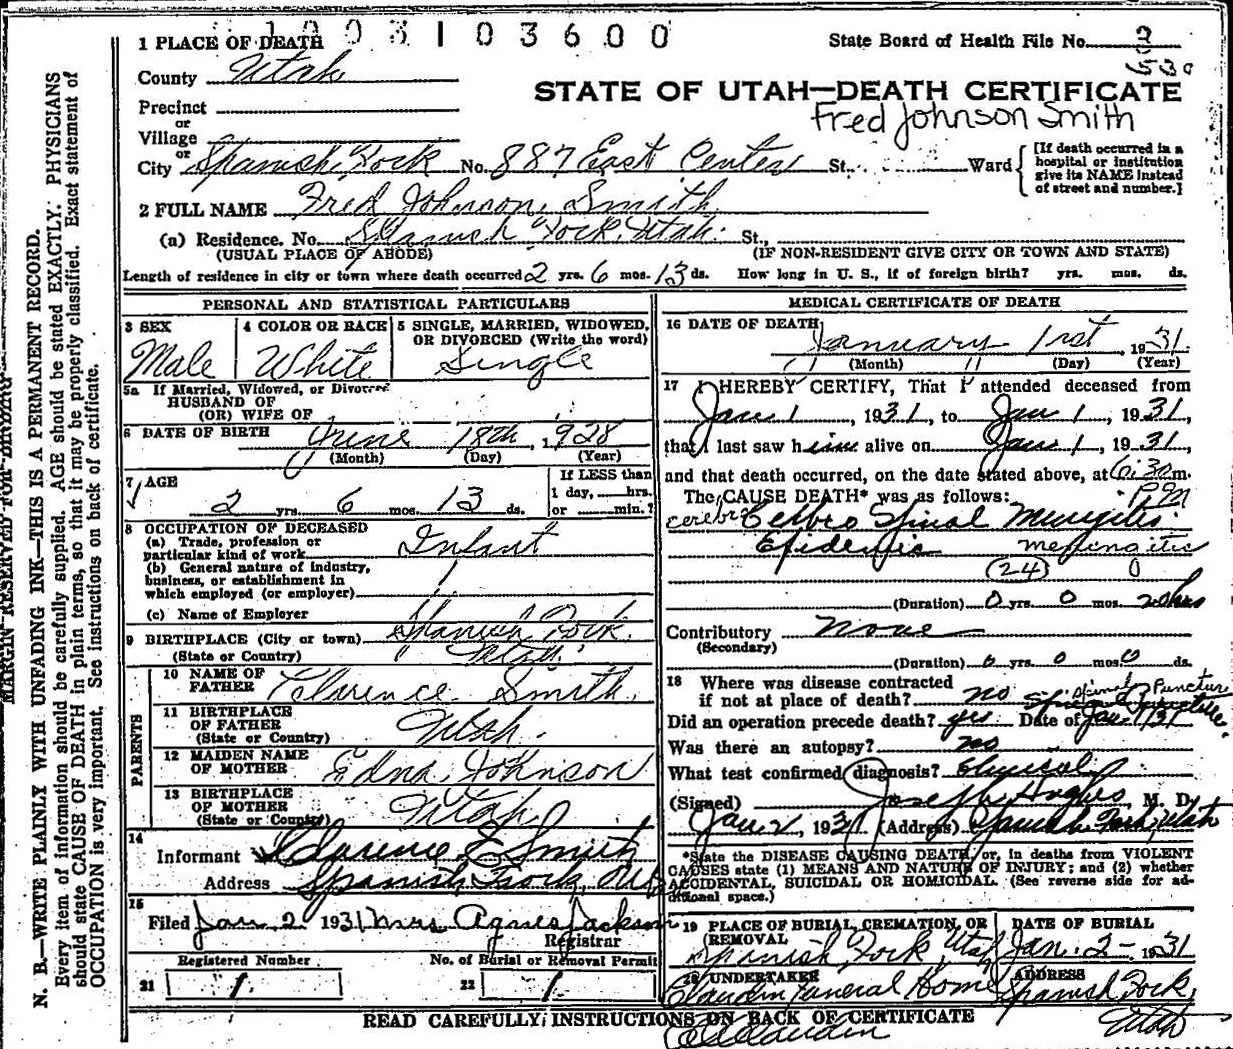 1003103600
1 PLACE OF DEATH
State Board of Health File No. 2
530
County Utah
STATE OF UTAH—DEATH CERTIFICATE
Fred Johnson Smith
Precinct
or
Village
or
City Spanish Fork No. 887 East Center St. Ward
[If death occurred in a hospital or institution give its NAME instead of street and number.]
2 FULL NAME Fred Johnson Smith
(a) Residence. No. Spanish Fork, Utah. St.,
(USUAL PLACE OF ABODE) (IF NON-RESIDENT GIVE CITY OR TOWN AND STATE)
Length of residence in city or town where death occurred 2 yrs. 6 mos. 13 ds. How long in U. S., if of foreign birth? yrs. mos. ds.
PERSONAL AND STATISTICAL PARTICULARS
3 SEX
Male
4 COLOR OR RACE
White
5 SINGLE, MARRIED, WIDOWED, OR DIVORCED (Write the word)
Single
5a If Married, Widowed, or Divorced
HUSBAND OF
(OR) WIFE OF
6 DATE OF BIRTH June 18th, 1928
(Month) (Day) (Year)
7 AGE
2 yrs. 6 mos. 13 ds.
If LESS than
1 day, hrs.
or min.?
8 OCCUPATION OF DECEASED
(a) Trade, profession or
particular kind of work Infant
(b) General nature of industry,
business, or establishment in
which employed (or employer)
(c) Name of Employer
9 BIRTHPLACE (City or town) Spanish Fork.
(State or Country) " Utah.
PARENTS
10 NAME OF
FATHER Clarence Smith
11 BIRTHPLACE
OF FATHER
(State or Country) Utah.
12 MAIDEN NAME
OF MOTHER Edna Johnson
13 BIRTHPLACE
OF MOTHER
(State or Country) Utah
14
Informant Clarence E Smith
Address Spanish Fork,
15
Filed Jan 2 1931 Mrs Agnes Jackson
Registrar
Registered Number No. of Burial or Removal Permit
21 1 22 1
MEDICAL CERTIFICATE OF DEATH
16 DATE OF DEATH
January 1st, 1931
(Month) (Day) (Year)
17 I HEREBY CERTIFY, That I attended deceased from
Jan 1, 1931, to Jan 1, 1931,
that I last saw him alive on Jan 1, 1931
and that death occurred, on the date stated above, at 6:30 m.
The CAUSE DEATH* was as follows: P.M
cerebro Cerbro Spinal Meningitis
Epidemic meningitis
(24)
(Duration) 0 yrs. 0 mos. 20 hrs
Contributory None
(Secondary)
(Duration) 0 yrs. 0 mos. 0 ds.
18 Where was disease contracted
if not at place of death? no Spinal Punctur
Did an operation precede death? yes Date of Jan 1/31
Was there an autopsy? no
What test confirmed diagnosis?
(Signed) Joseph Hughes, M. D.
Jan 2, 1931 (Address) Spanish Fork, Utah
*State the DISEASE CAUSING DEATH, or, in deaths from VIOLENT
CAUSES state (1) MEANS AND NATURE OF INJURY; and (2) whether
ACCIDENTAL, SUICIDAL OR HOMICIDAL. (See reverse side for ad-
ditional space.)
19 PLACE OF BURIAL, CREMATION, OR REMOVAL
Spanish Fork, Utah
DATE OF BURIAL
Jan. 2- 1931
20 UNDERTAKER
Claudin Funeral Home
ADDRESS
Spanish Fork,
Utah
READ CAREFULLY; INSTRUCTIONS ON BACK OF CERTIFICATE
MARGIN RESERVED FOR BINDING
N. B.—WRITE PLAINLY WITH UNFADING INK—THIS IS A PERMANENT RECORD.
Every item of information should be carefully supplied. AGE should be stated EXACTLY. PHYSICIANS
should state CAUSE OF DEATH in plain terms, so that it may be properly classified. Exact statement of
OCCUPATION is very important. See instructions on back of certificate.